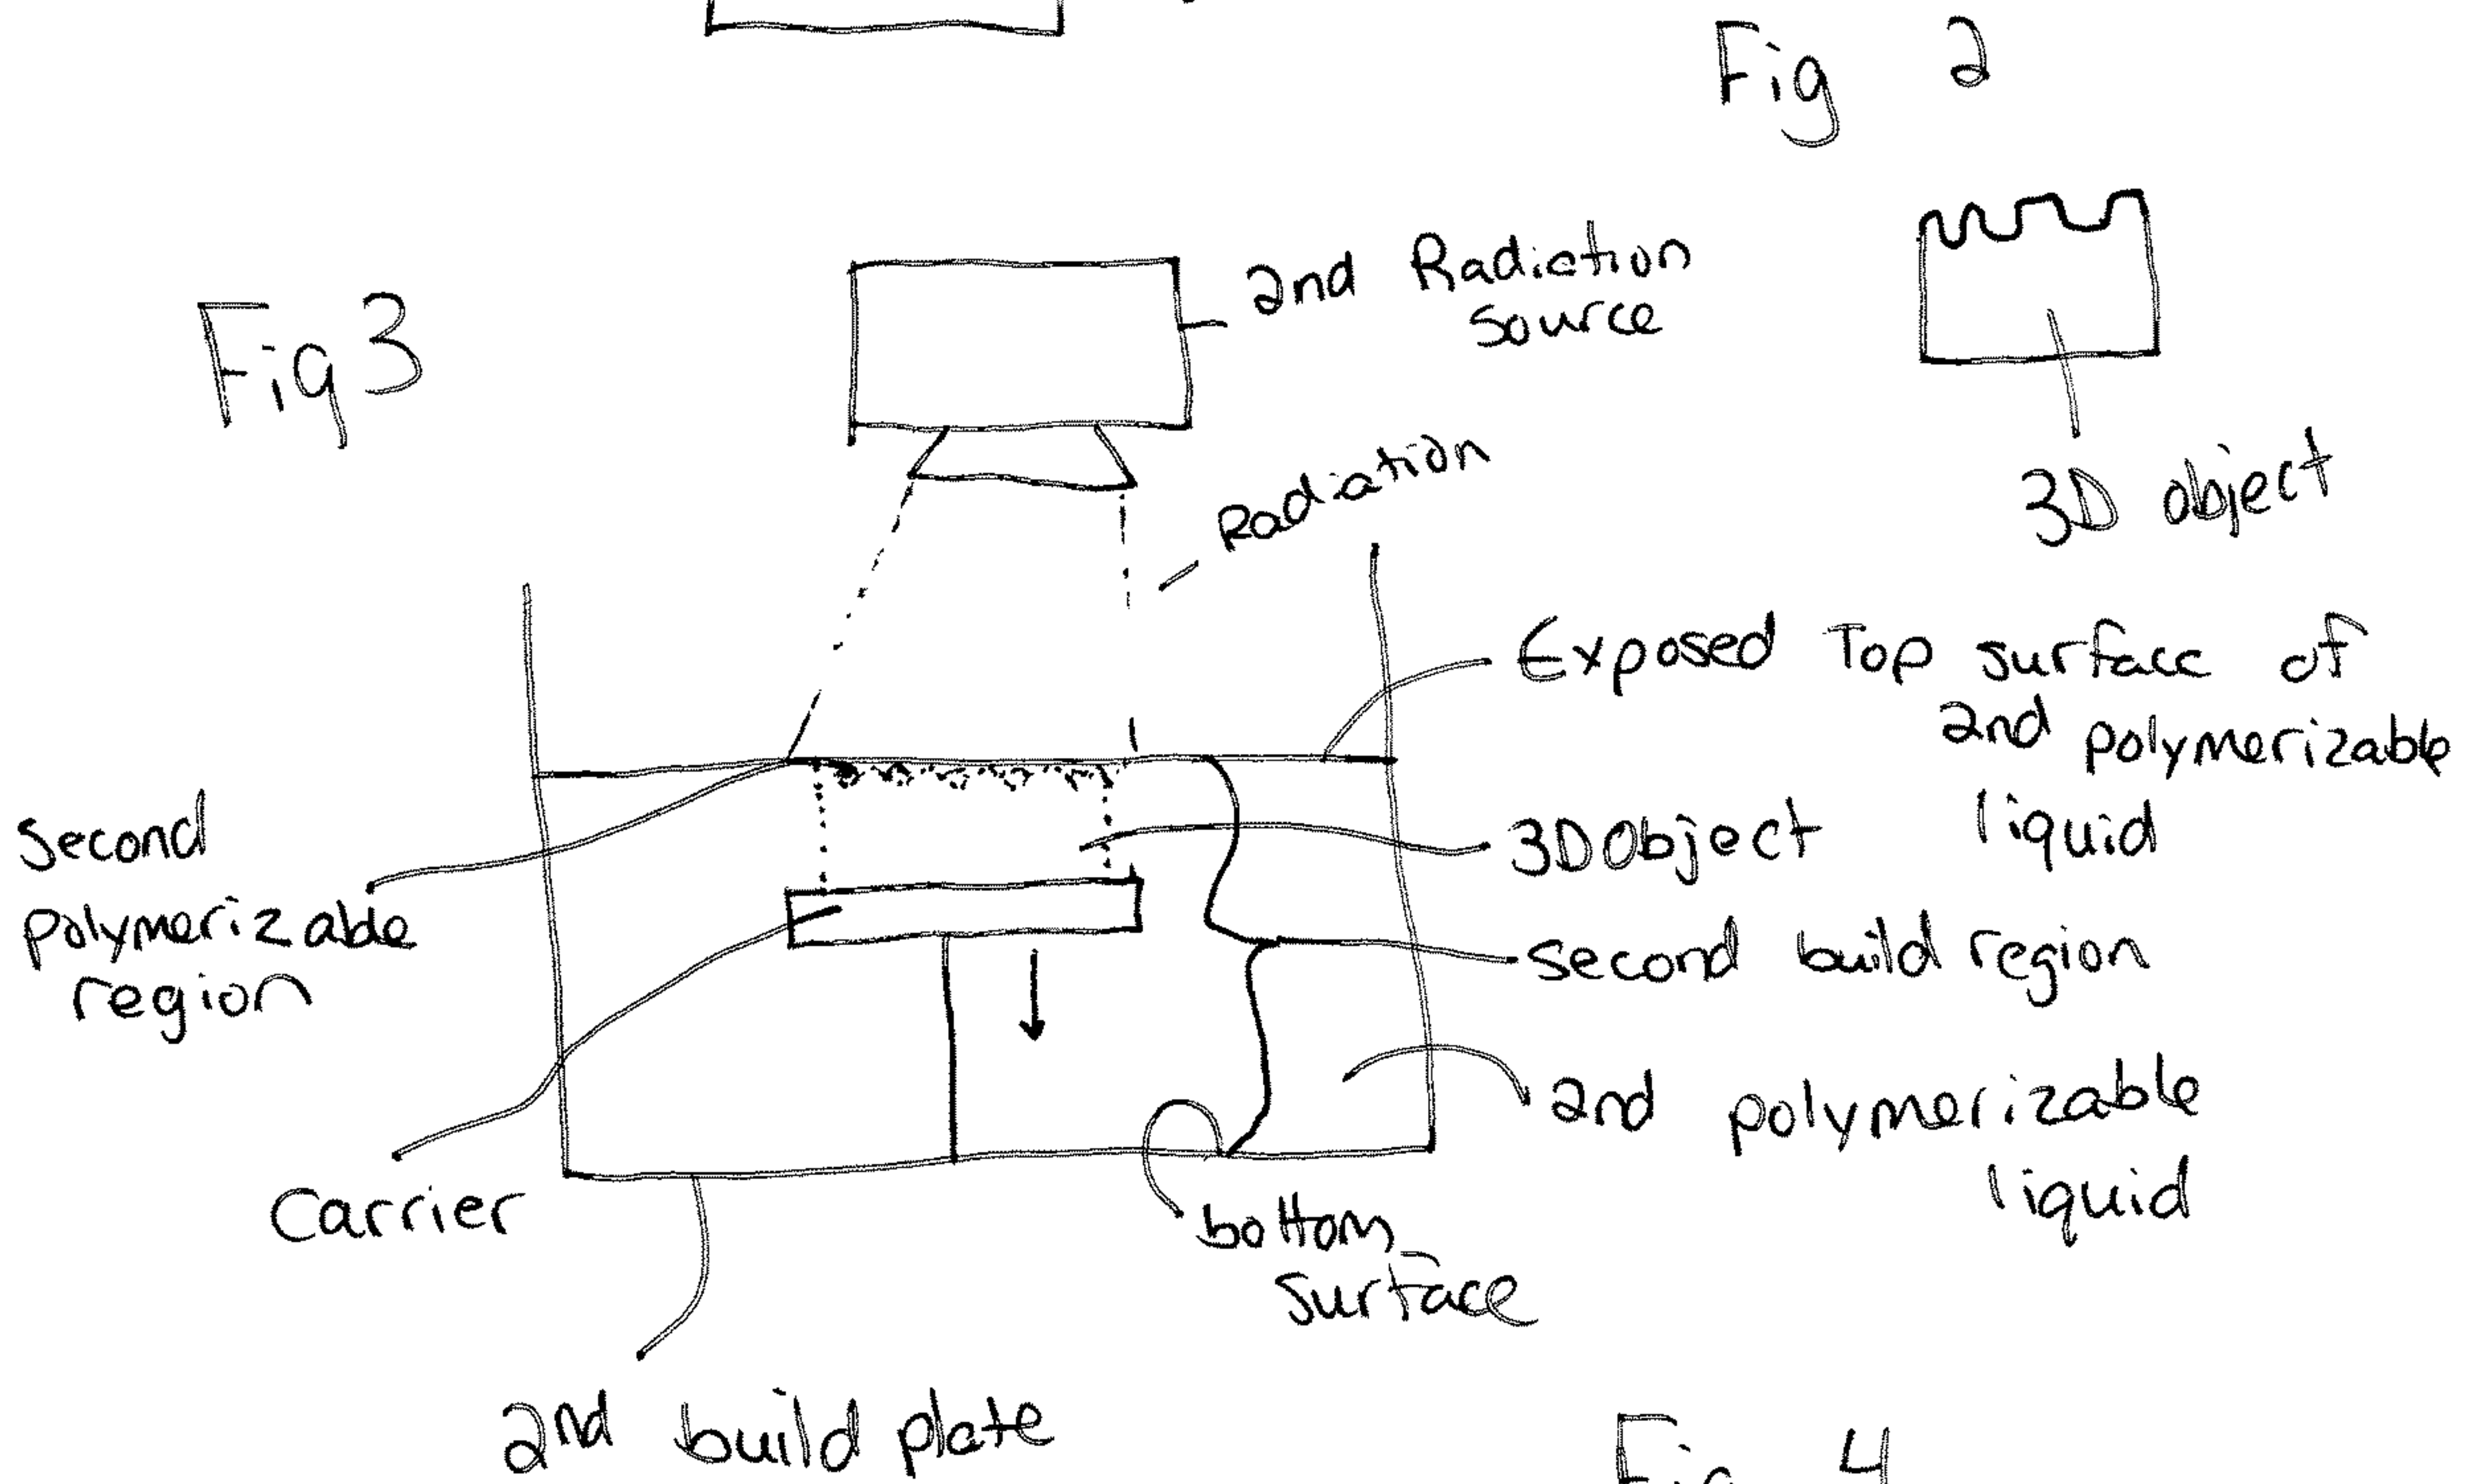 Fig 2
Fig 3
2nd Radiation
source
Radiation
3D object
Exposed Top surface of
2nd polymerizable
liquid
3D Object
Second
polymerizable
region
second build region
2nd polymerizable
liquid
Carrier
bottom
surface
2nd build plate
Fig 4